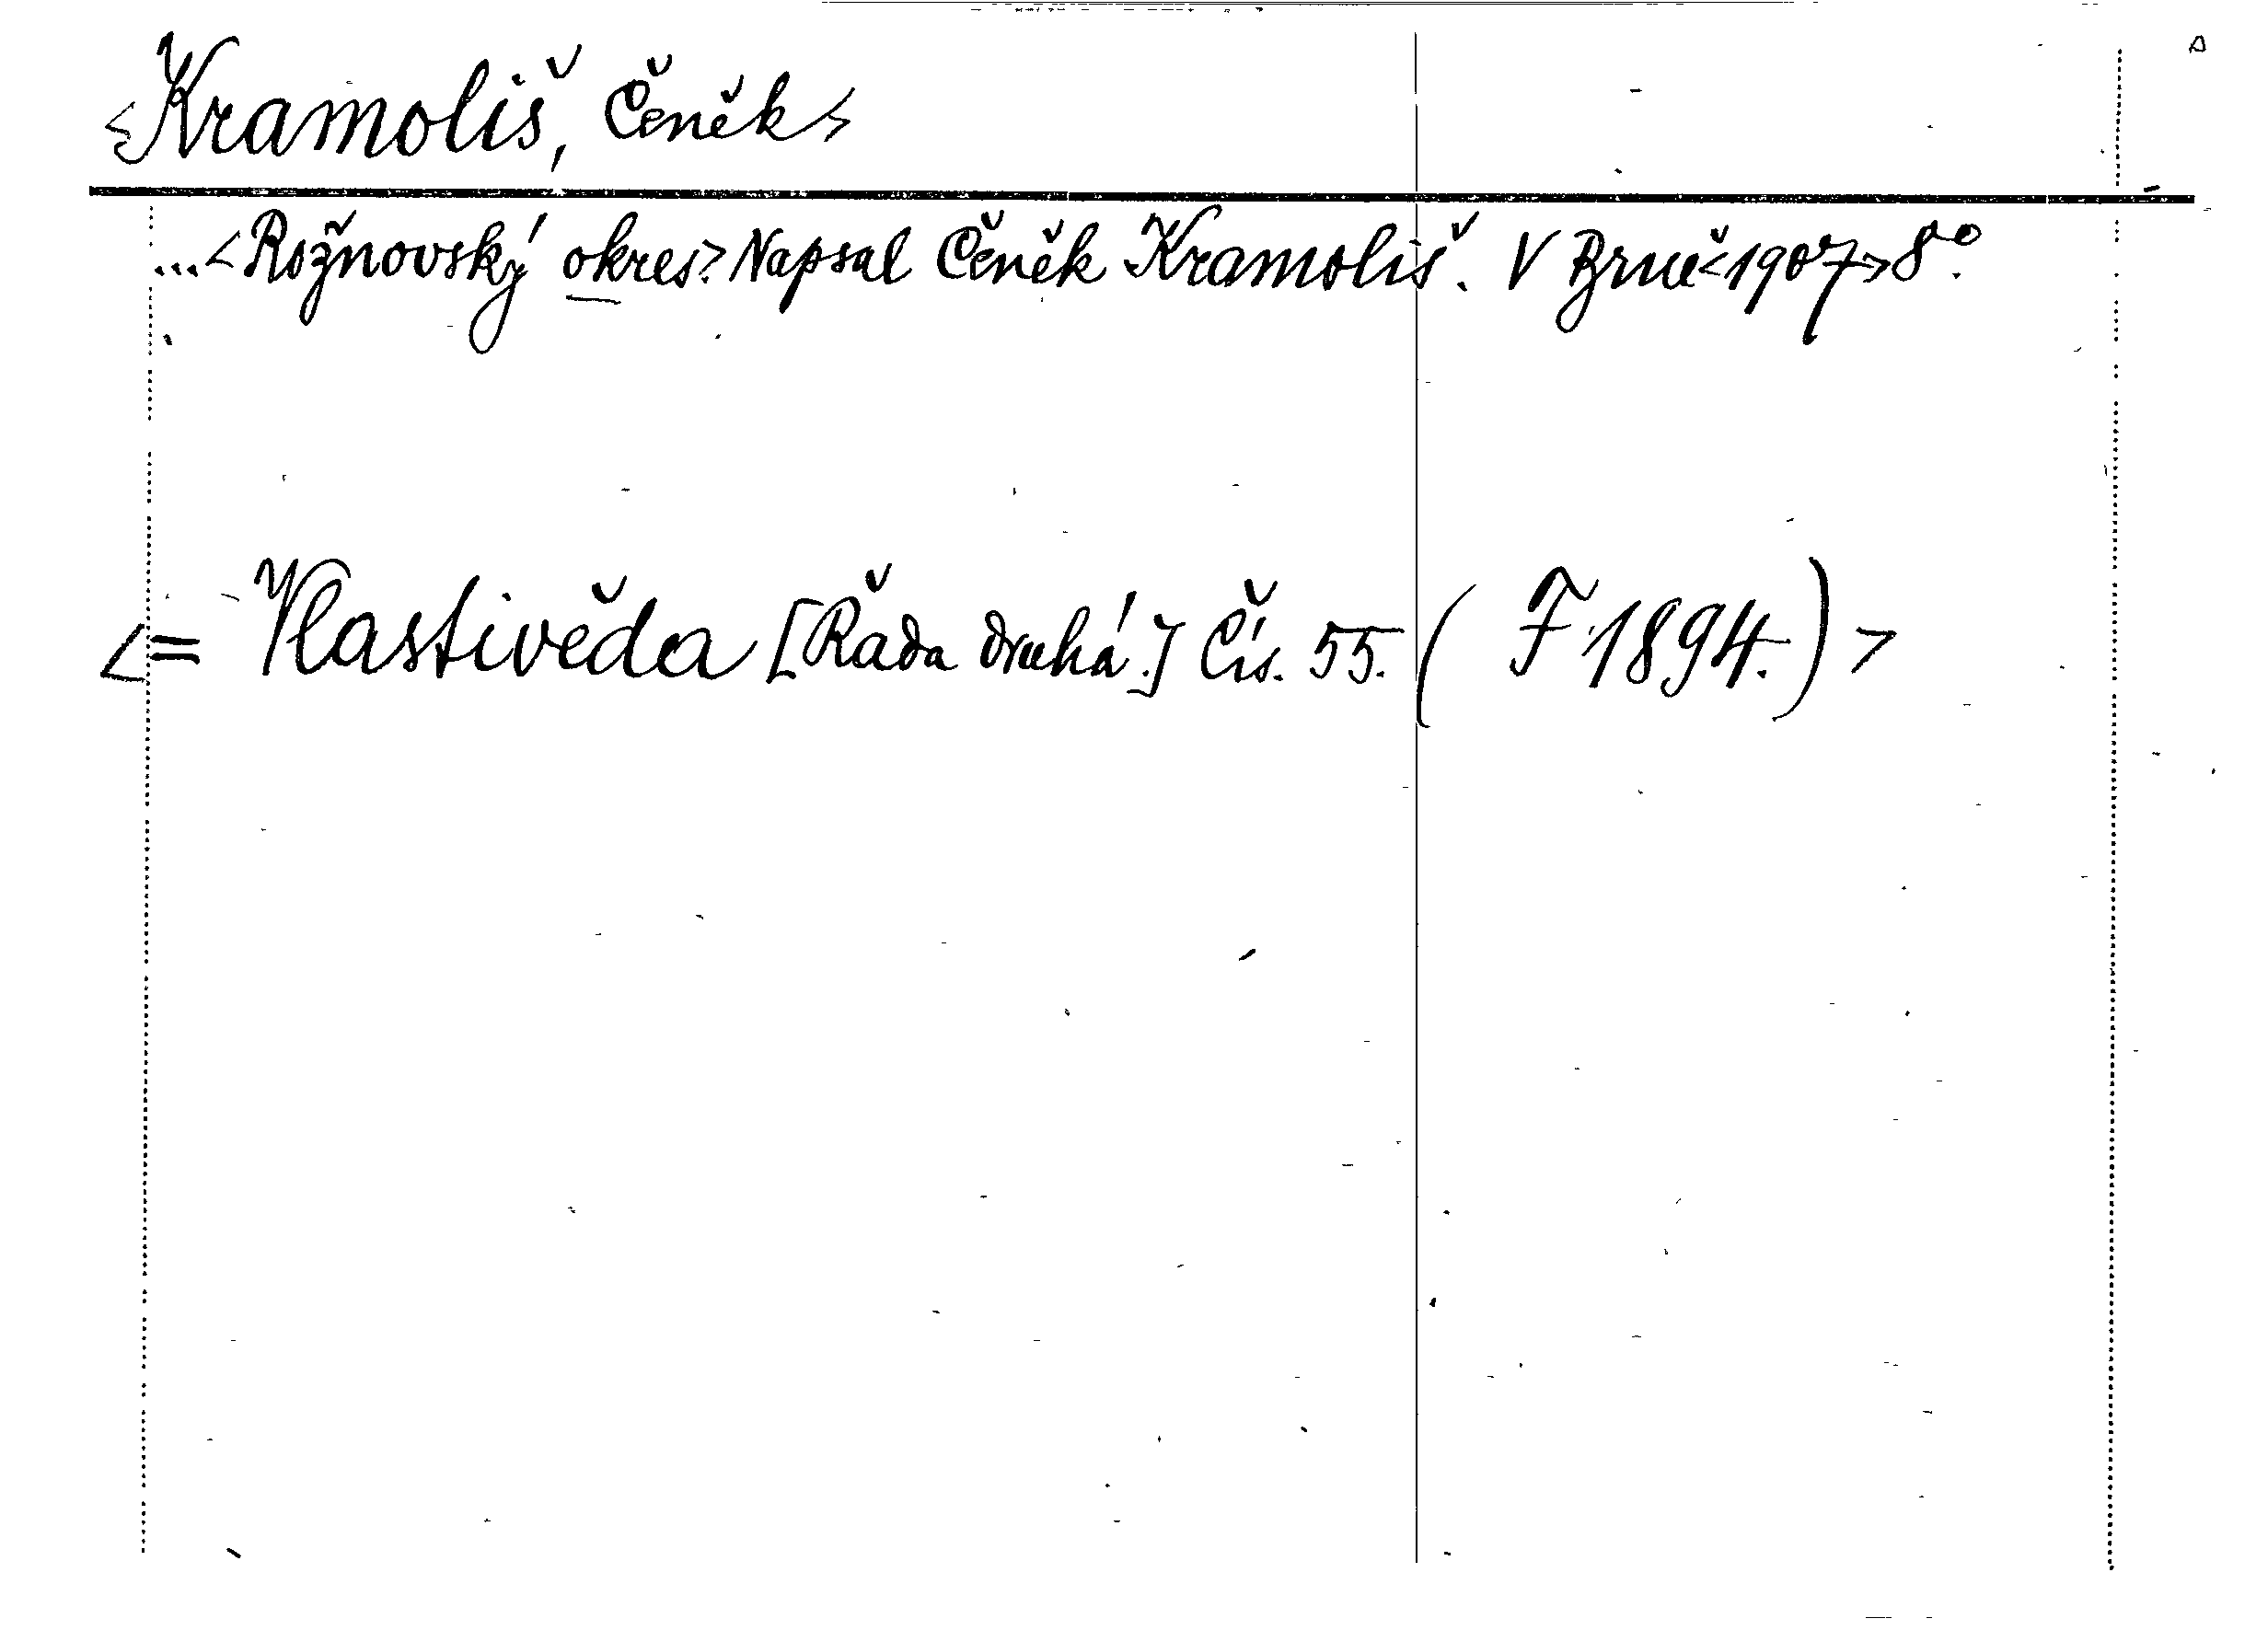 <Kramoliš, Čeněk>
...<Rožnovský okres.> Napsal Čeněk Kramoliš. V Brně <1907> 8°.
<= Vlastivěda [Řada druhá.] Čís. 55. (F 1894.) >